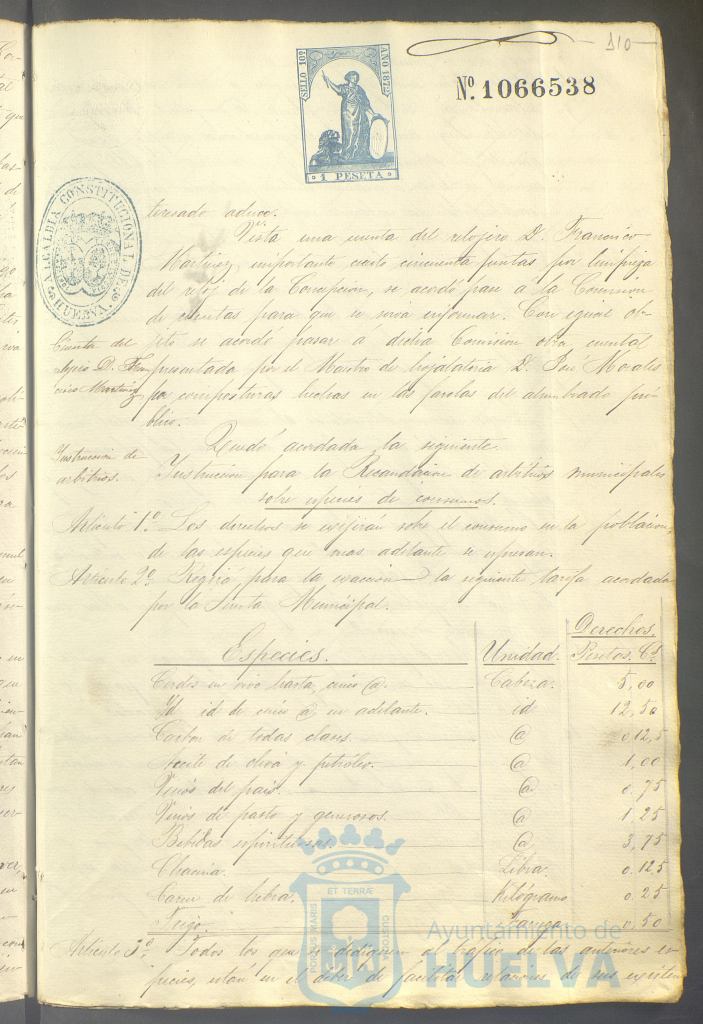 110
SELLO 10º AÑO 1872
1 PESETA
Nº 1066538
ALCALDIA CONSTITUCIONAL DE HUELVA
teresado aduce.
Vista una cuenta del relojero D. Francisco
Martinez, importante ciento cincuenta pesetas por limpieza
del reloj de la Concepcion, se acordó pase a la Comision
de cuentas para que se sirva informar. Con igual ob-
Cuenta del
relojero D. Fran
cisco Martinez
jeto se acordó pasar a dicha Comision otra cuenta
presentada por el Maestro de hojalateria D. José Morales
por composturas hechas en las farolas del alumbrado pú-
blico.
Quedó acordada la siguiente
Instruccion de
arbitrios.
Instrucion para la Recaudacion de arbitrios municipales
sobre especies de consumos.
Articulo 1º Los derechos se exijirán sobre el consumo en la poblacion,
de las especies que mas adelante se espresan.
Articulo 2º Regirá para la exaccion la siguiente tarifa acordada
por la Junta Municipal.
Derechos.
Especies. Unidad. Pesetas. Cs.
Cerdos en vivo hasta cinco @. Cabeza. 5,00
Id. id de cinco @ en adelante. id 12,50
Carbon de todas clases. @ 0,125
Aceite de oliva y petróleo. @ 1,00
Vinos del pais. @ 0,75
Vinos de pasto y generosos. @ 1,25
Bebidas espirituosas. @ 3,75
Chacina. Libra. 0,125
Carne de hebra. Kilógramo 0,25
Trigo. Fanega 0,50
Articulo 3º Todos los que se dediquen al trafico de las anteriores es-
pecies, están en el deber de facilitar relaciones de sus existen
ET TERRÆ
PORTUS MARIS
CUSTODIO
Ayuntamiento de
HUELVA